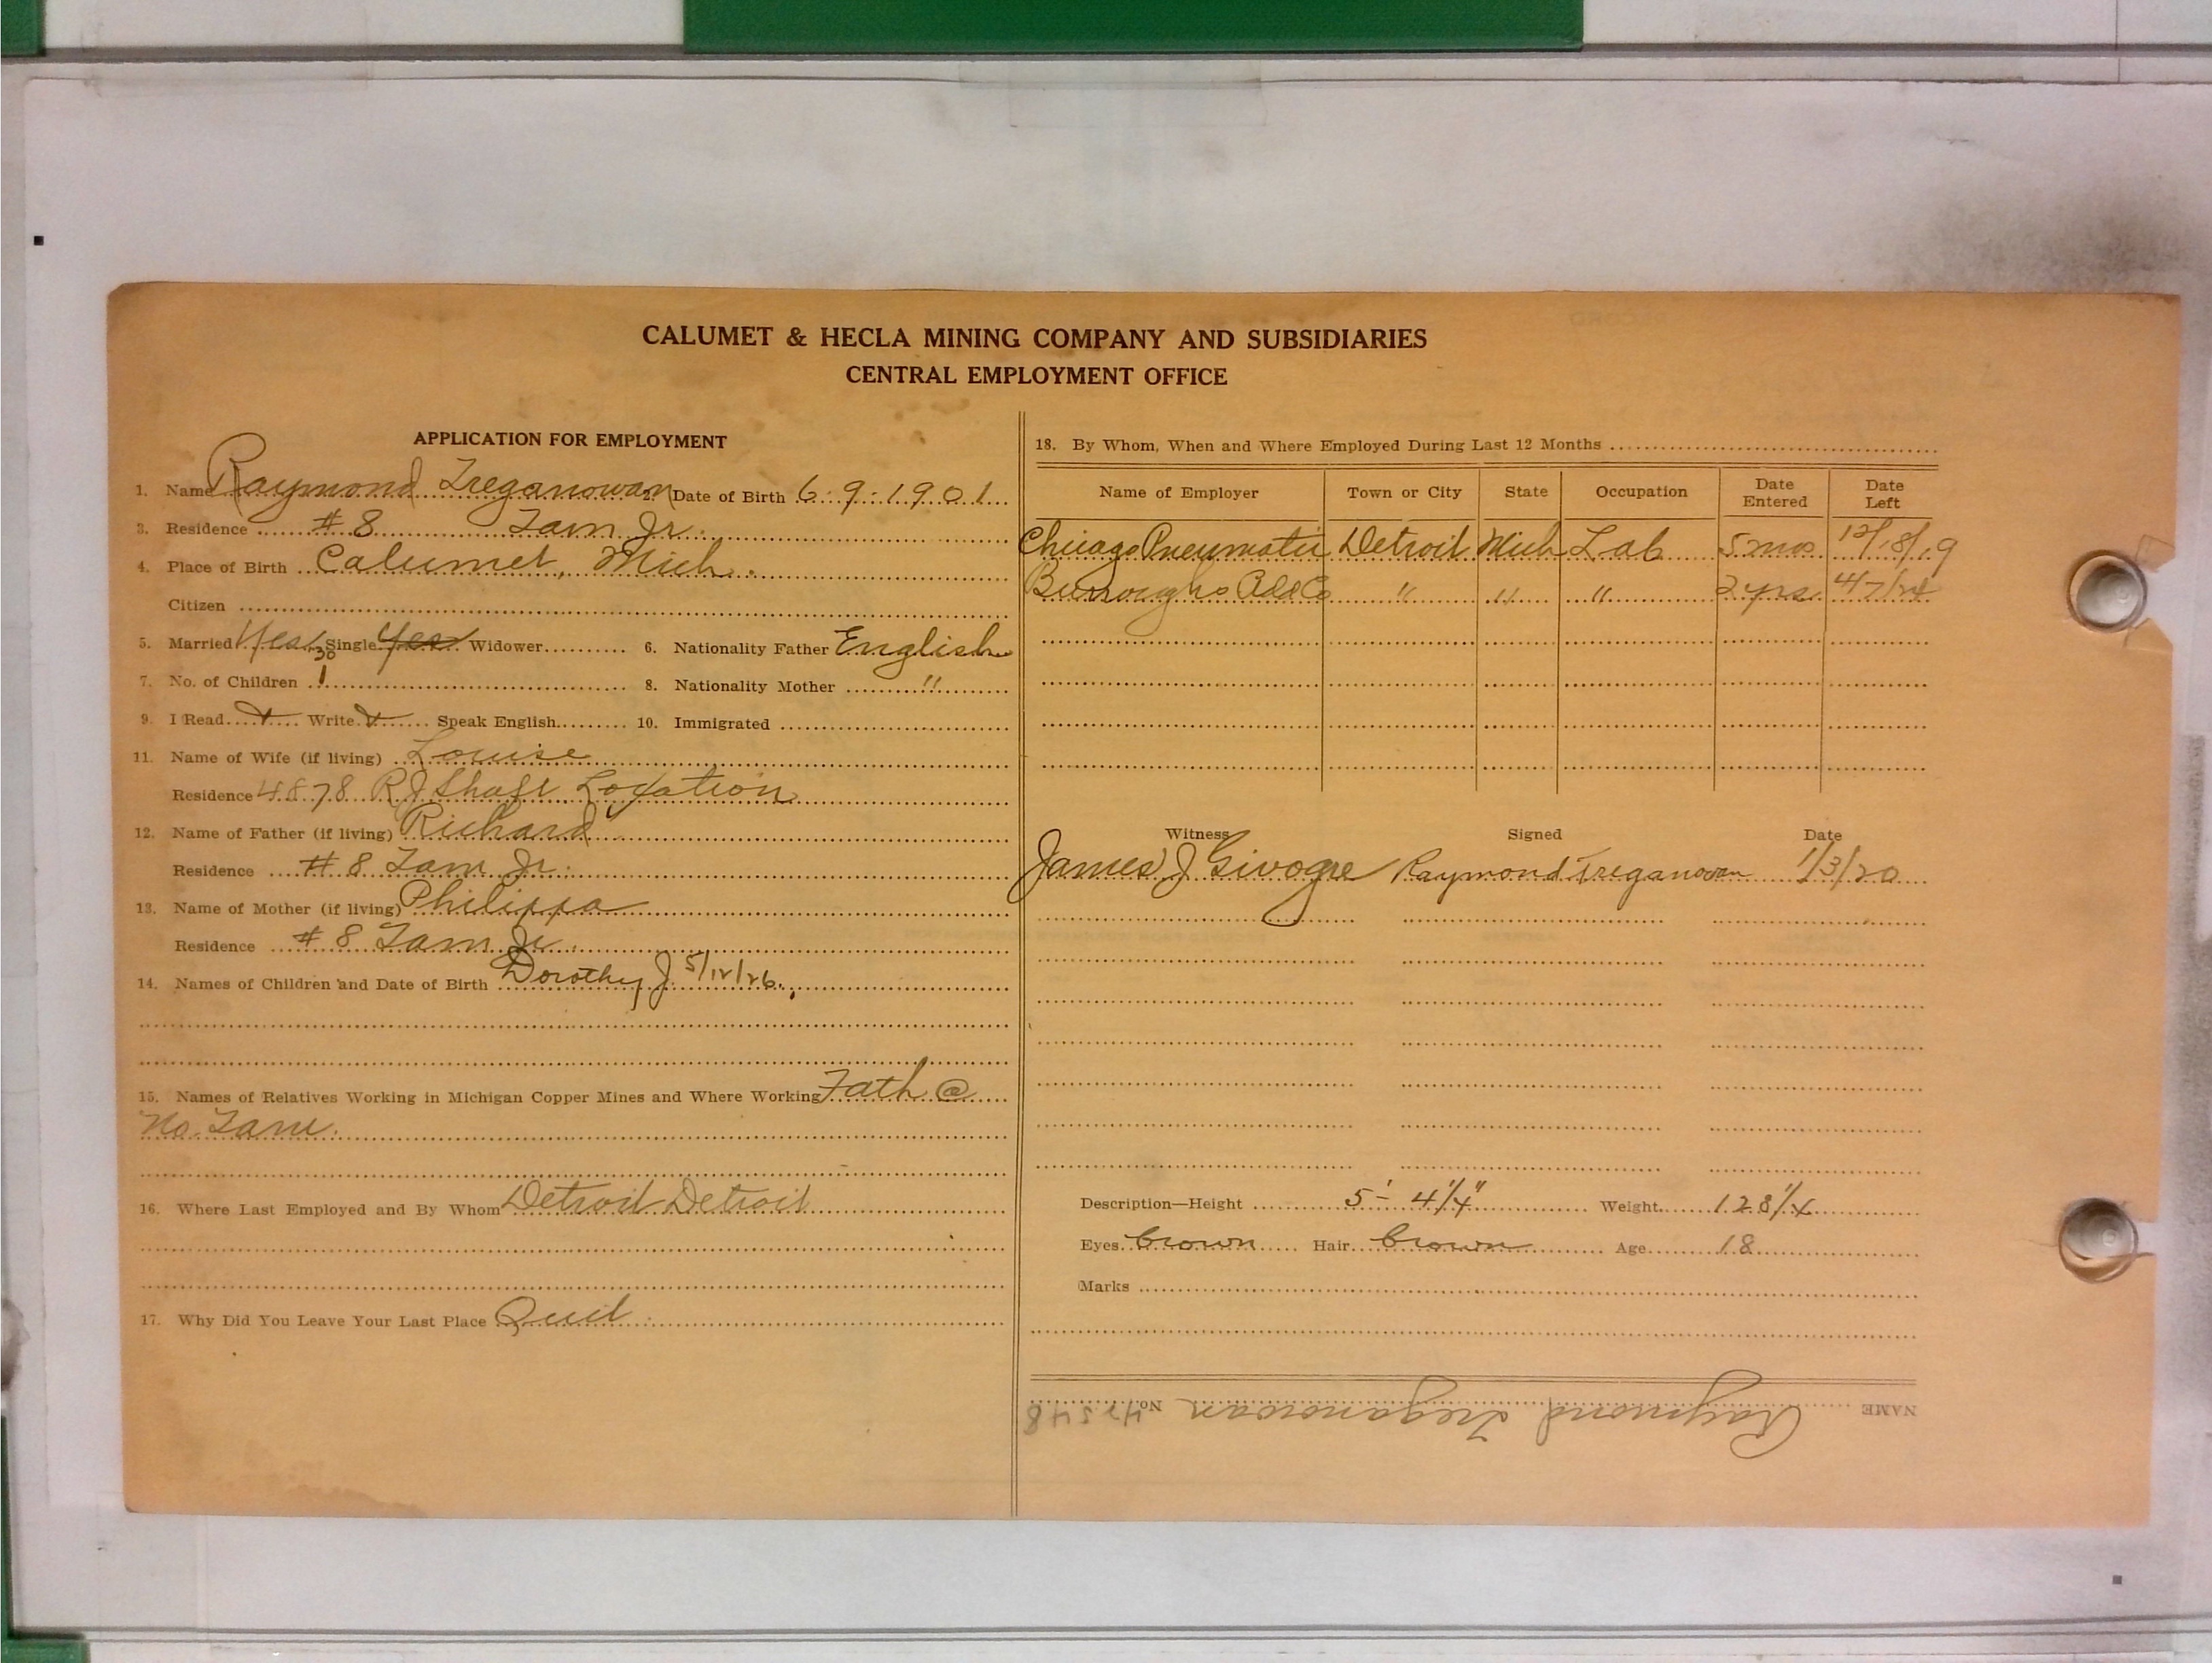 CALUMET & HECLA MINING COMPANY AND SUBSIDIARIES
CENTRAL EMPLOYMENT OFFICE
APPLICATION FOR EMPLOYMENT
1. Name Raymond Treganowan 2. Date of Birth 6-9-1901
3. Residence #8 Tam Jr.
4. Place of Birth Calumet, Mich.
Citizen
5. Married Yes Single Yes Widower 6. Nationality Father English
7. No. of Children 1 8. Nationality Mother "
9. I Read Write Speak English 10. Immigrated
11. Name of Wife (if living) Louise
Residence 4878 RJ Shaft Location
12. Name of Father (if living) Richard
Residence #8 Tam Jr.
13. Name of Mother (if living) Philippa
Residence #8 Tam Jr.
14. Names of Children and Date of Birth Dorothy J. 5/12/26
15. Names of Relatives Working in Michigan Copper Mines and Where Working Fath @
No. Tam.
16. Where Last Employed and By Whom Detroit Detroit
17. Why Did You Leave Your Last Place Quit
18. By Whom, When and Where Employed During Last 12 Months
Name of Employer Town or City State Occupation Date Entered Date Left
Chicago Pneumatic Detroit Mich Lab 5 mos 12/18/19
Burroughs Add Co " " " 2 yrs 4/7/24
Witness Signed Date
James J Givogre Raymond Treganowan 1/3/20
Description—Height 5'-4 1/4" Weight 128 1/4
Eyes brown Hair brown Age 18
Marks
NAME Raymond Treganowan No. 42548